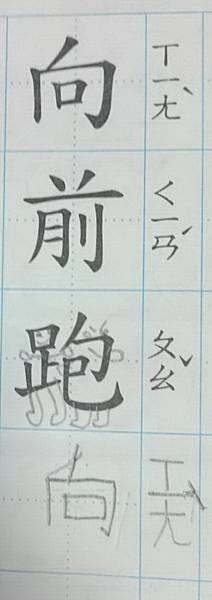 向 ㄒㄧㄤˋ
前 ㄑㄧㄢˊ
跑 ㄆㄠˇ
向 ㄒㄧㄤˋ